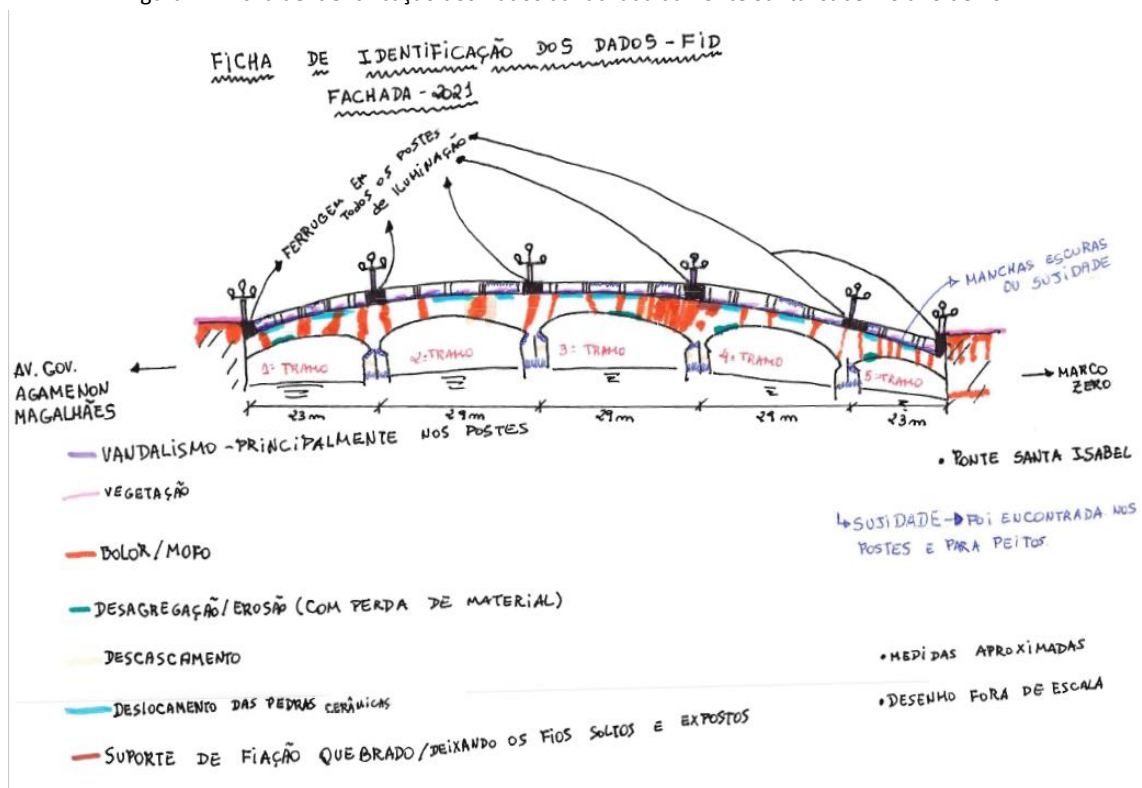 FICHA DE IDENTIFICAÇÃO DOS DADOS - FID
FACHADA - 2021
FERRUGEM EM
TODOS OS POSTES
de ILUMINAÇÃO
MANCHAS ESCURAS
OU SUJIDADE
1º TRAMO
2º TRAMO
3º TRAMO
4º TRAMO
5º TRAMO
AV. GOV.
AGAMENON
MAGALHÃES
MARCO
ZERO
23m
29m
29m
29m
23m
VANDALISMO - PRINCIPALMENTE NOS POSTES
VEGETAÇÃO
BOLOR/MOFO
DESAGREGAÇÃO/EROSÃO (COM PERDA DE MATERIAL)
DESCASCAMENTO
DESLOCAMENTO DAS PEDRAS CERÂMICAS
SUPORTE DE FIAÇÃO QUEBRADO/DEIXANDO OS FIOS SOLTOS E EXPOSTOS
• PONTE SANTA ISABEL
↳ SUJIDADE → FOI ENCONTRADA NOS
POSTES E PARA PEITOS.
• MEDIDAS APROXIMADAS
• DESENHO FORA DE ESCALA